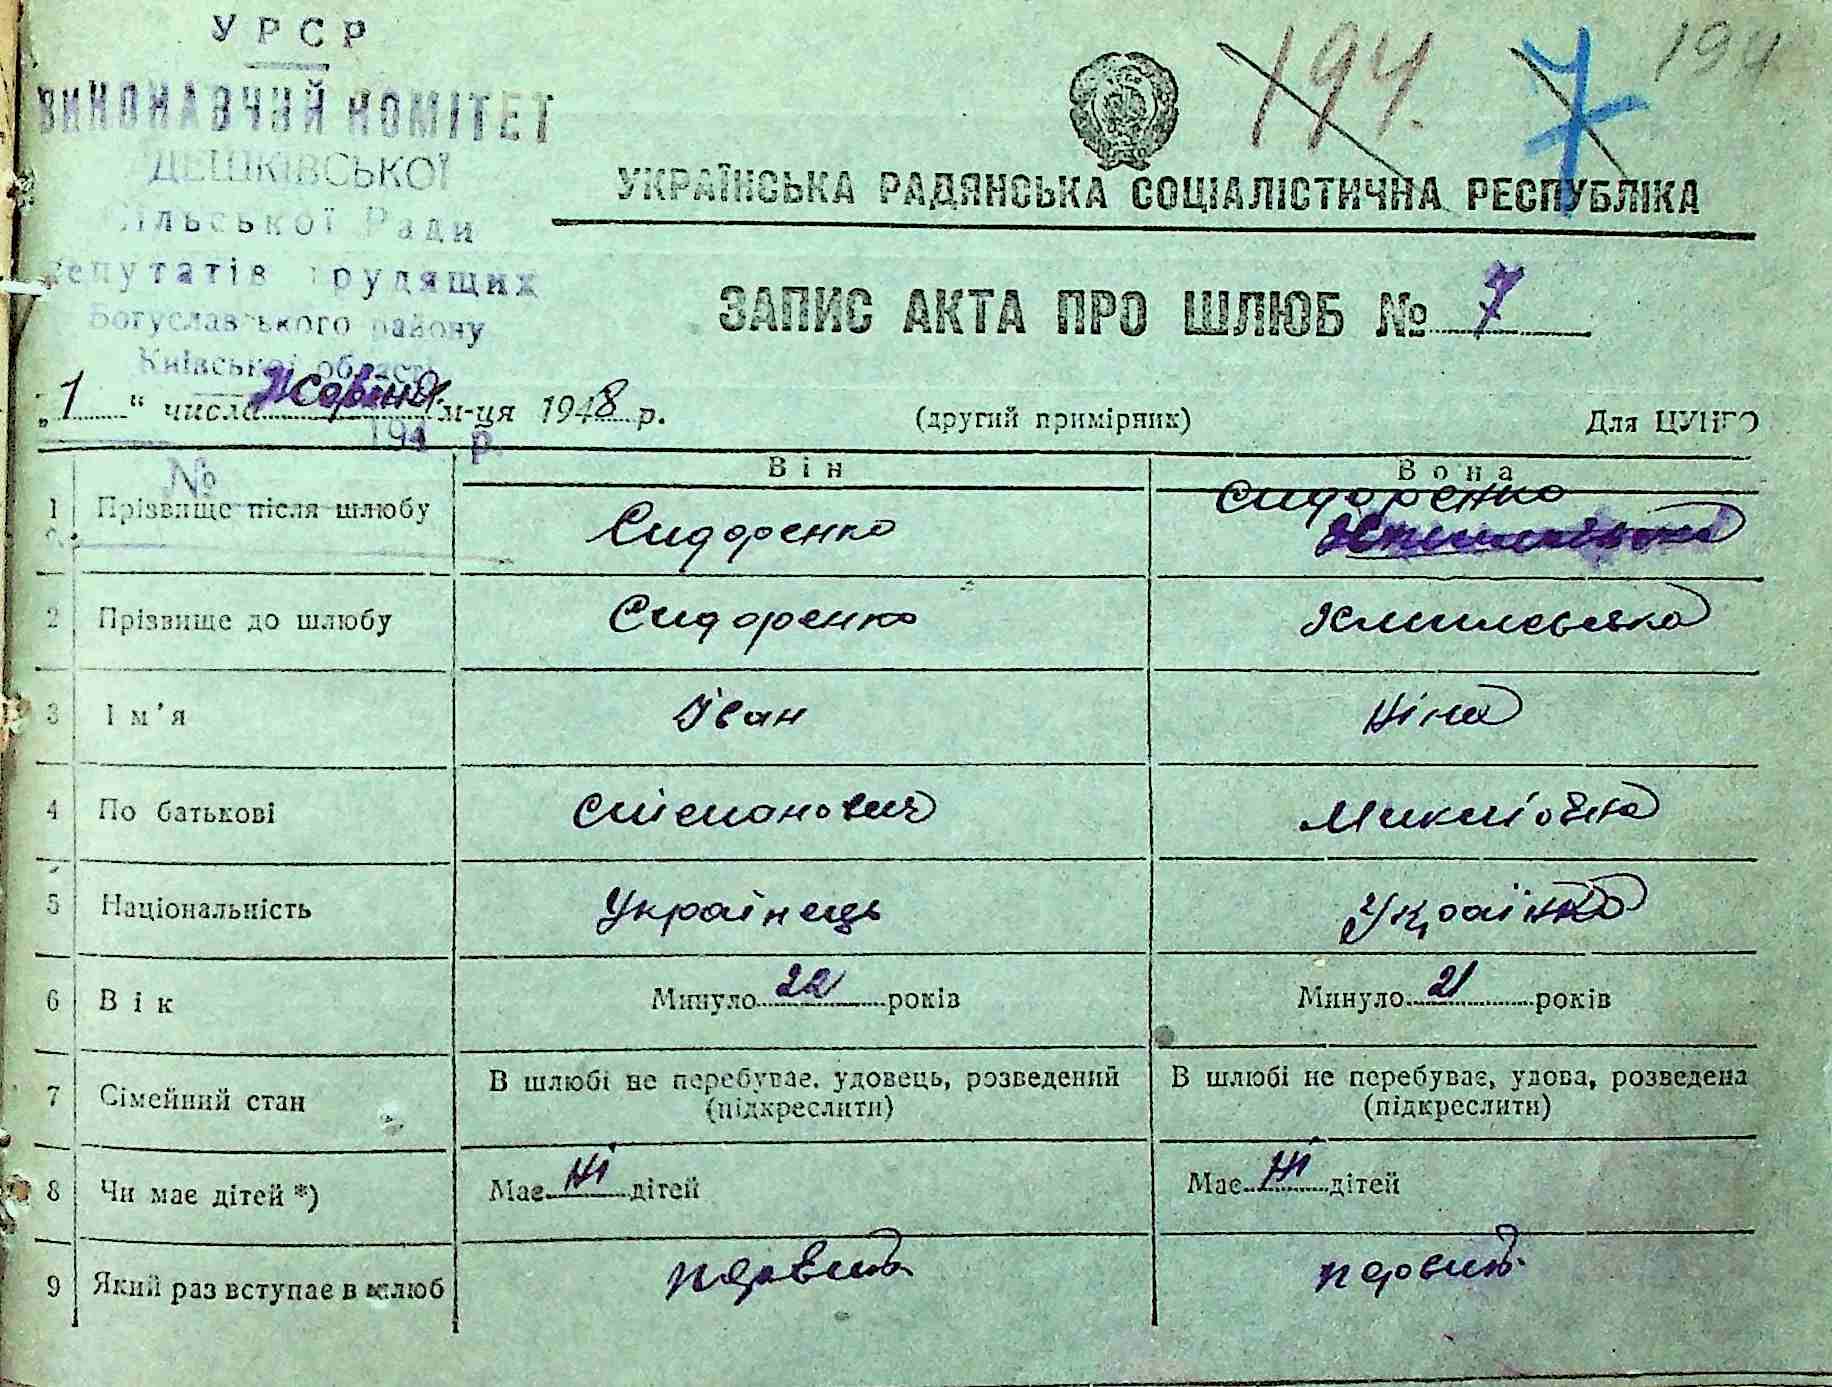 УРСР
ВИКОНАВЧИЙ КОМІТЕТ
ДЕШКІВСЬКОЇ
Сільської Ради
депутатів трудящих
Богуславського району
Київської області
194 р.
№
194. 7 194
УКРАЇНСЬКА РАДЯНСЬКА СОЦІАЛІСТИЧНА РЕСПУБЛІКА
ЗАПИС АКТА ПРО ШЛЮБ № 7
„1“ числа Жовтня м-ця 1948 р. (другий примірник) Для ЦУНГО
Він Вона
1 Прізвище після шлюбу Сидоренко Сидоренко
2 Прізвище до шлюбу Сидоренко
3 Ім'я Іван Ніна
4 По батькові Степанович
5 Національність Українець Українка
6 Вік Минуло 22 років Минуло 21 років
7 Сімейний стан В шлюбі не перебуває, удовець, розведений (підкреслити) В шлюбі не перебуває, удова, розведена (підкреслити)
8 Чи має дітей *) Має ні дітей Має ні дітей
9 Який раз вступає в шлюб